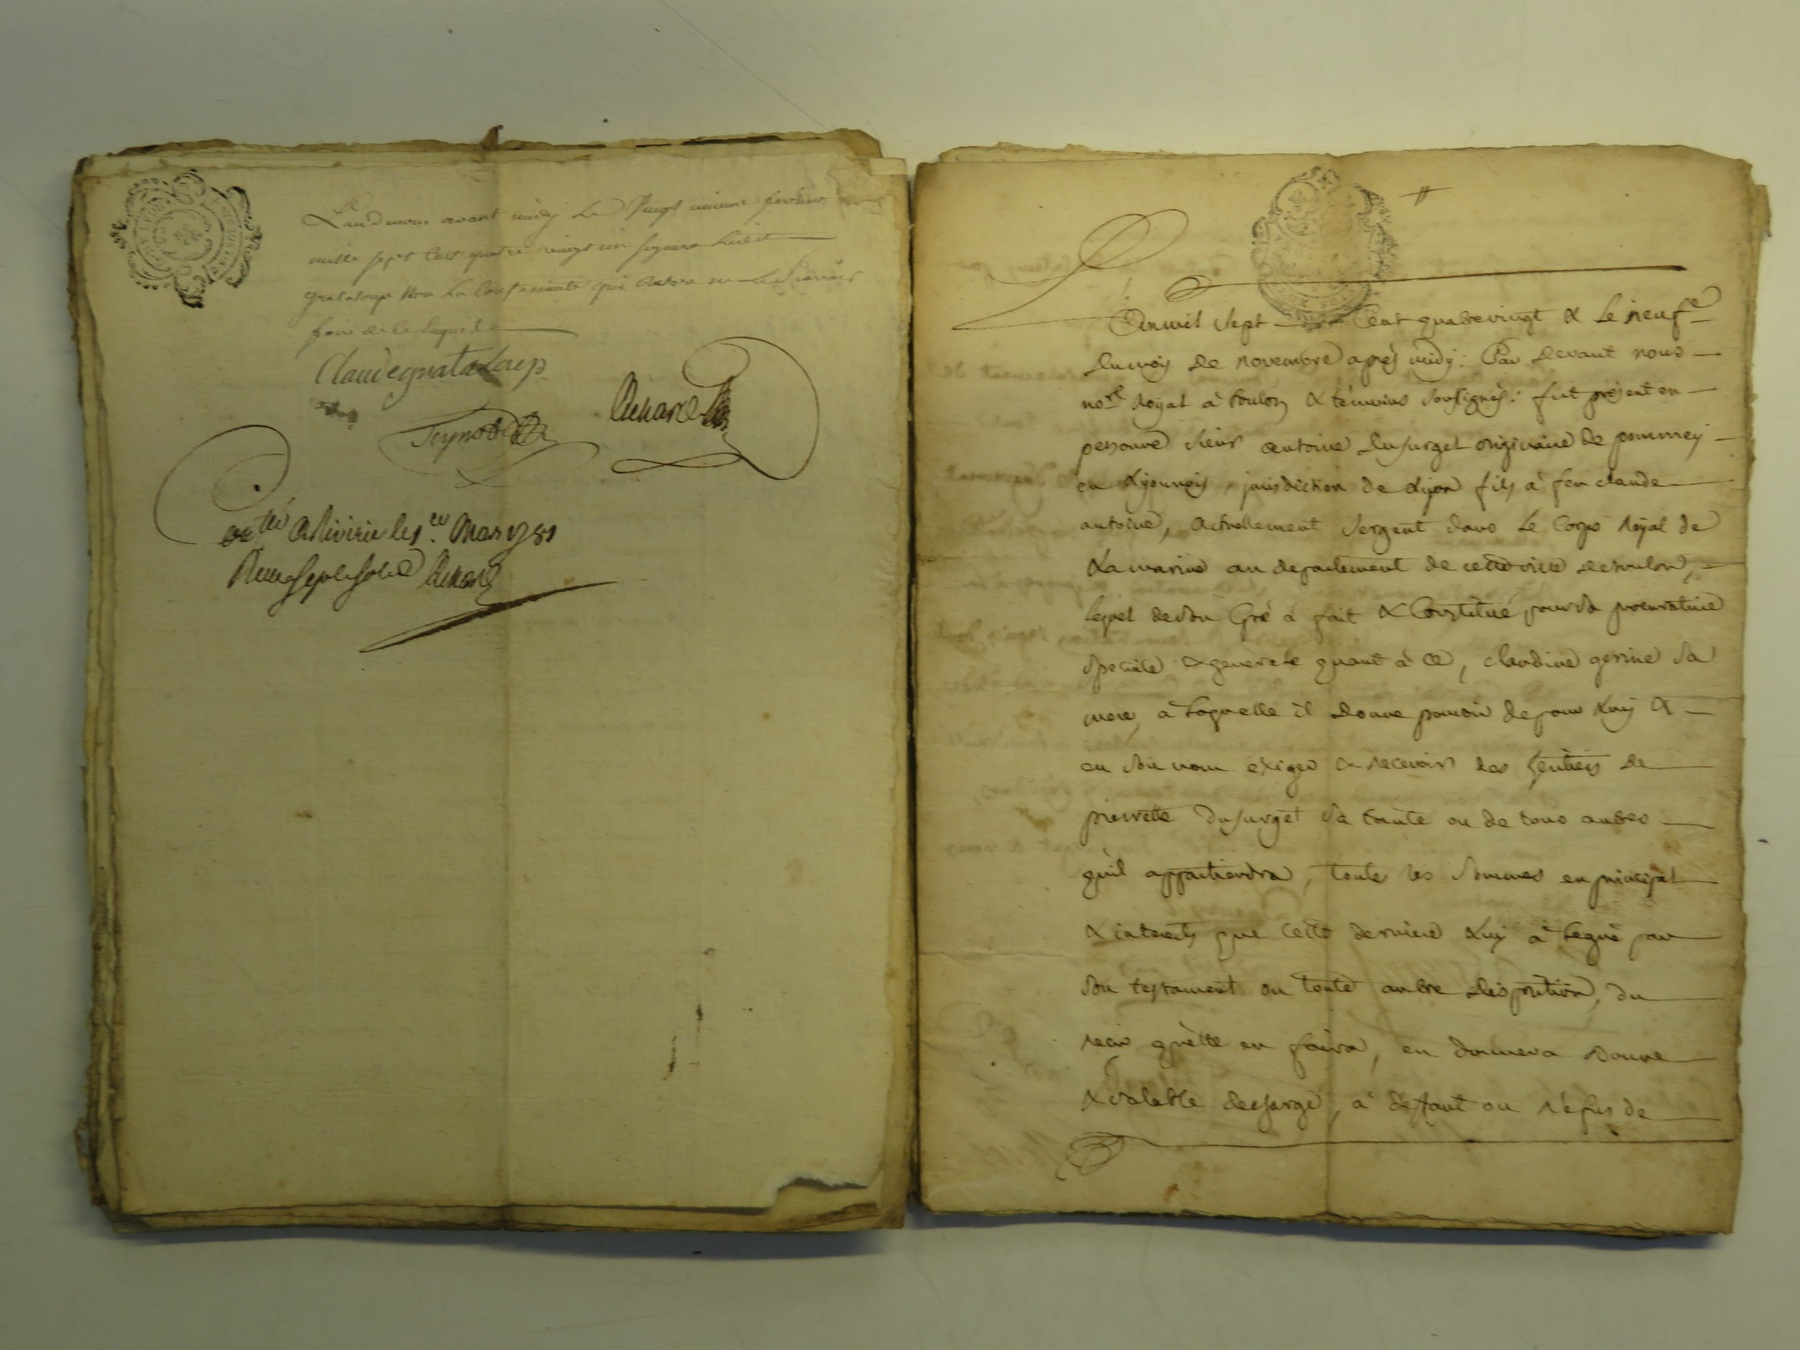 avant midy Le Vingt unieme fevrier
mille sept cent quatre vingt un signera Ledit
grataloup Non La Confessante qui Enquise ne Le Scavoir
faire de ce Enquise
Claude grataloup
Con.lé A Riverie le 1.er Mars 1781
L'an mil sept Cent quatrevingt & Le neufe
du mois de novembre après midy: Par devant nous
no.re Royal à toulon & témoins soussignés: fut présent en
personne sieur antoine dusurget originaire de pommey
en Lyonnois, jurisdiction de Lyon fils à feu claude
antoine, actuellement sergent dans Le Corps Royal de
La marine au departement de cette ville de toulon,
Lequel de son Gré à fait & Constitué pour sa procuratrice
speciale & generale quant à ce, claudine gerine sa
mere, à Laquelle il donne pouvoir de pour Luy &
en son nom exiger & recevoir des héritiers de
pierrette dusurget sa tante ou de tous autres
qu'il appartiendra, toutes les sommes en principal
& interets que cette derniere Luy à Legué par
son testament ou toute autre disposition, du
reçu qu'elle en faira, en donnera bonne
& valable decharge, à deffaut ou réfus de